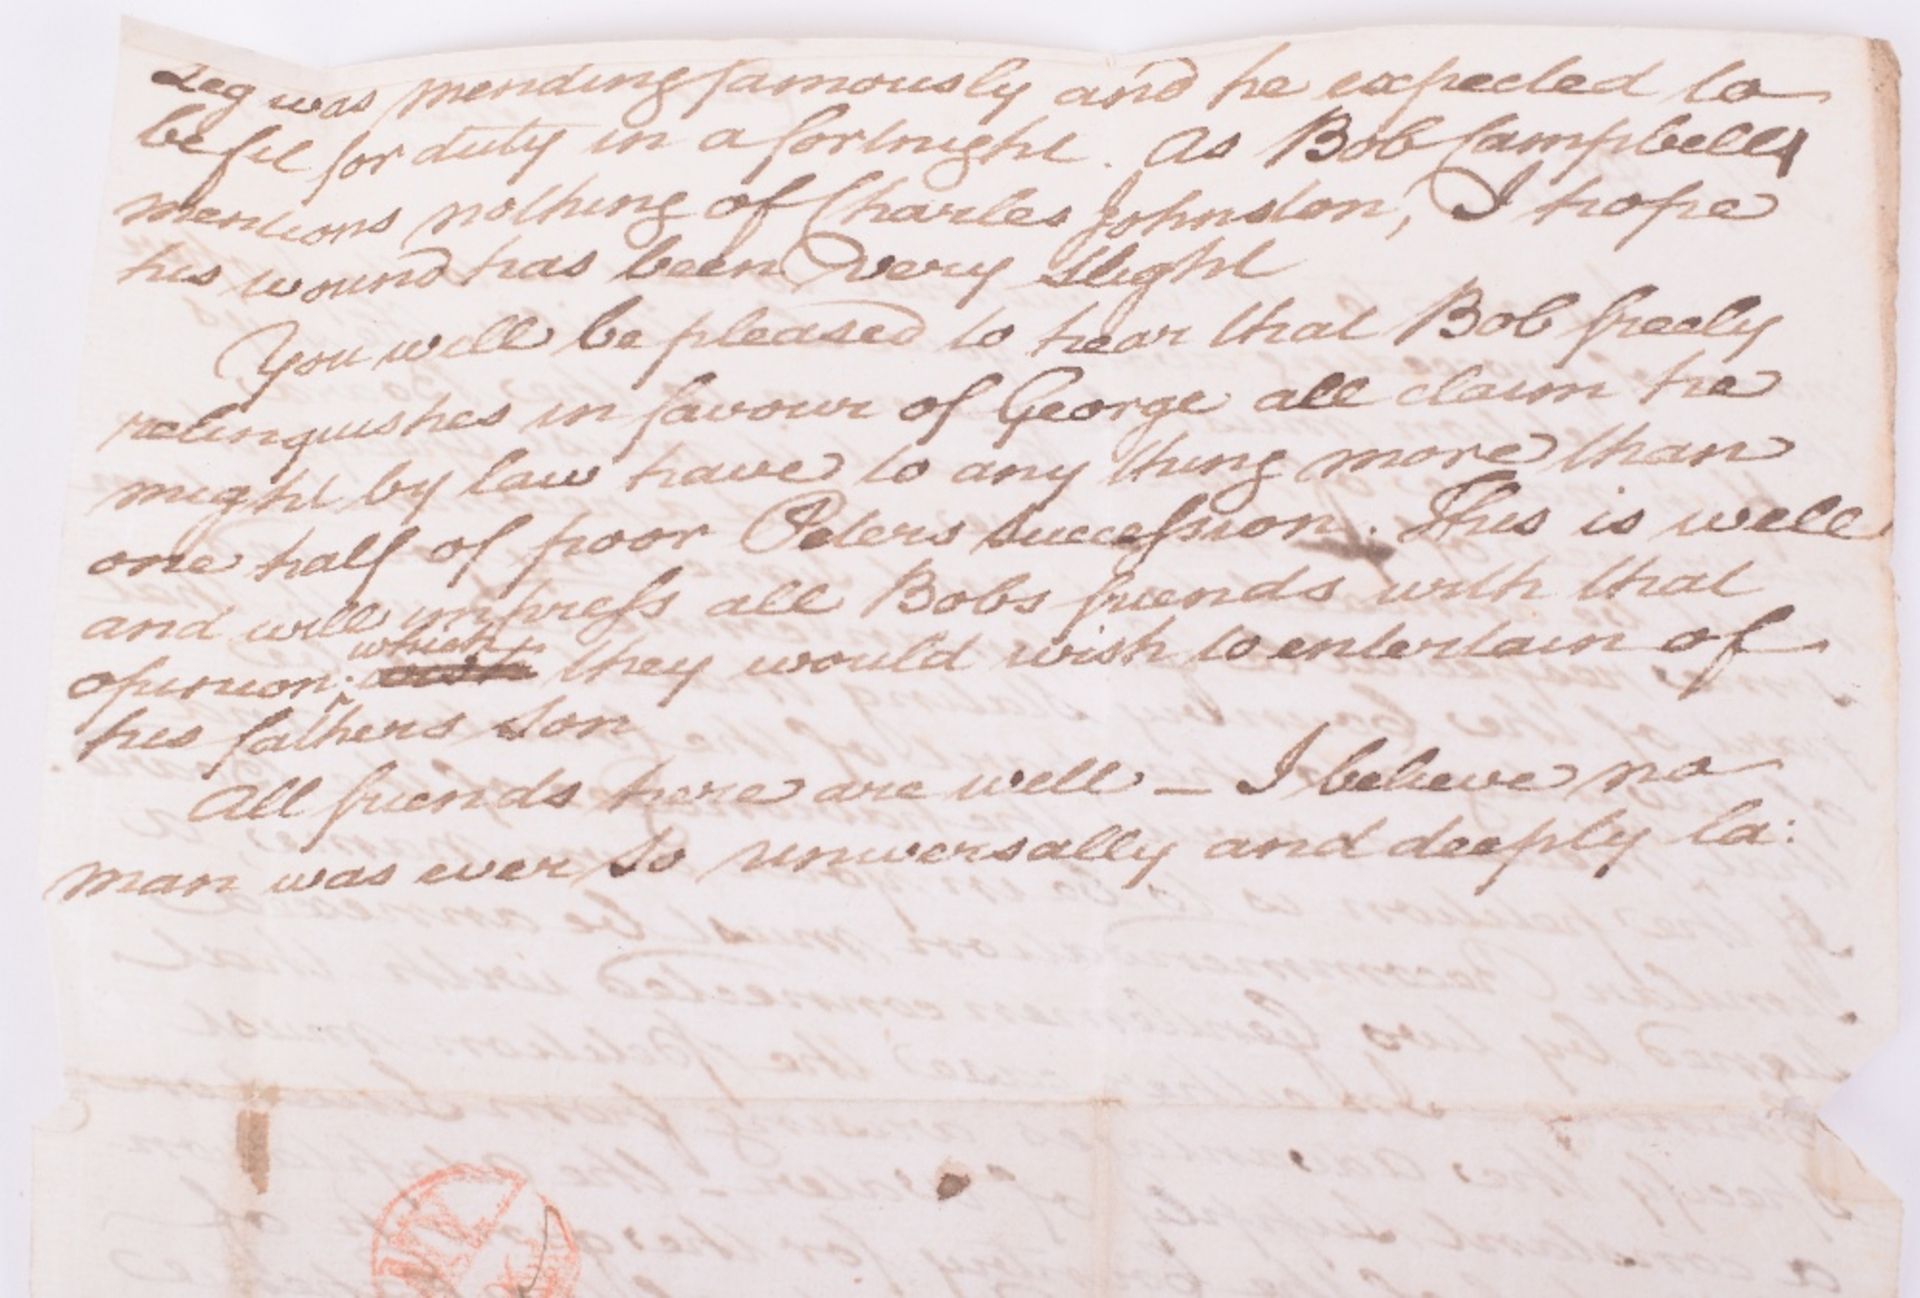 Leg was mending famously and he expected to
be fit for duty in a fortnight. As Bob Campbell
mentions nothing of Charles Johnston, I hope
his wound has been very slight
You will be pleased to hear that Bob freely
relinquishes in favour of George all claim he
might by law have to any thing more than
one half of poor Peters succession. This is well
and will impress all Bobs friends with that
opinion which they would wish to entertain of
his fathers son
All friends here are well – I believe no
man was ever so universally and deeply la: